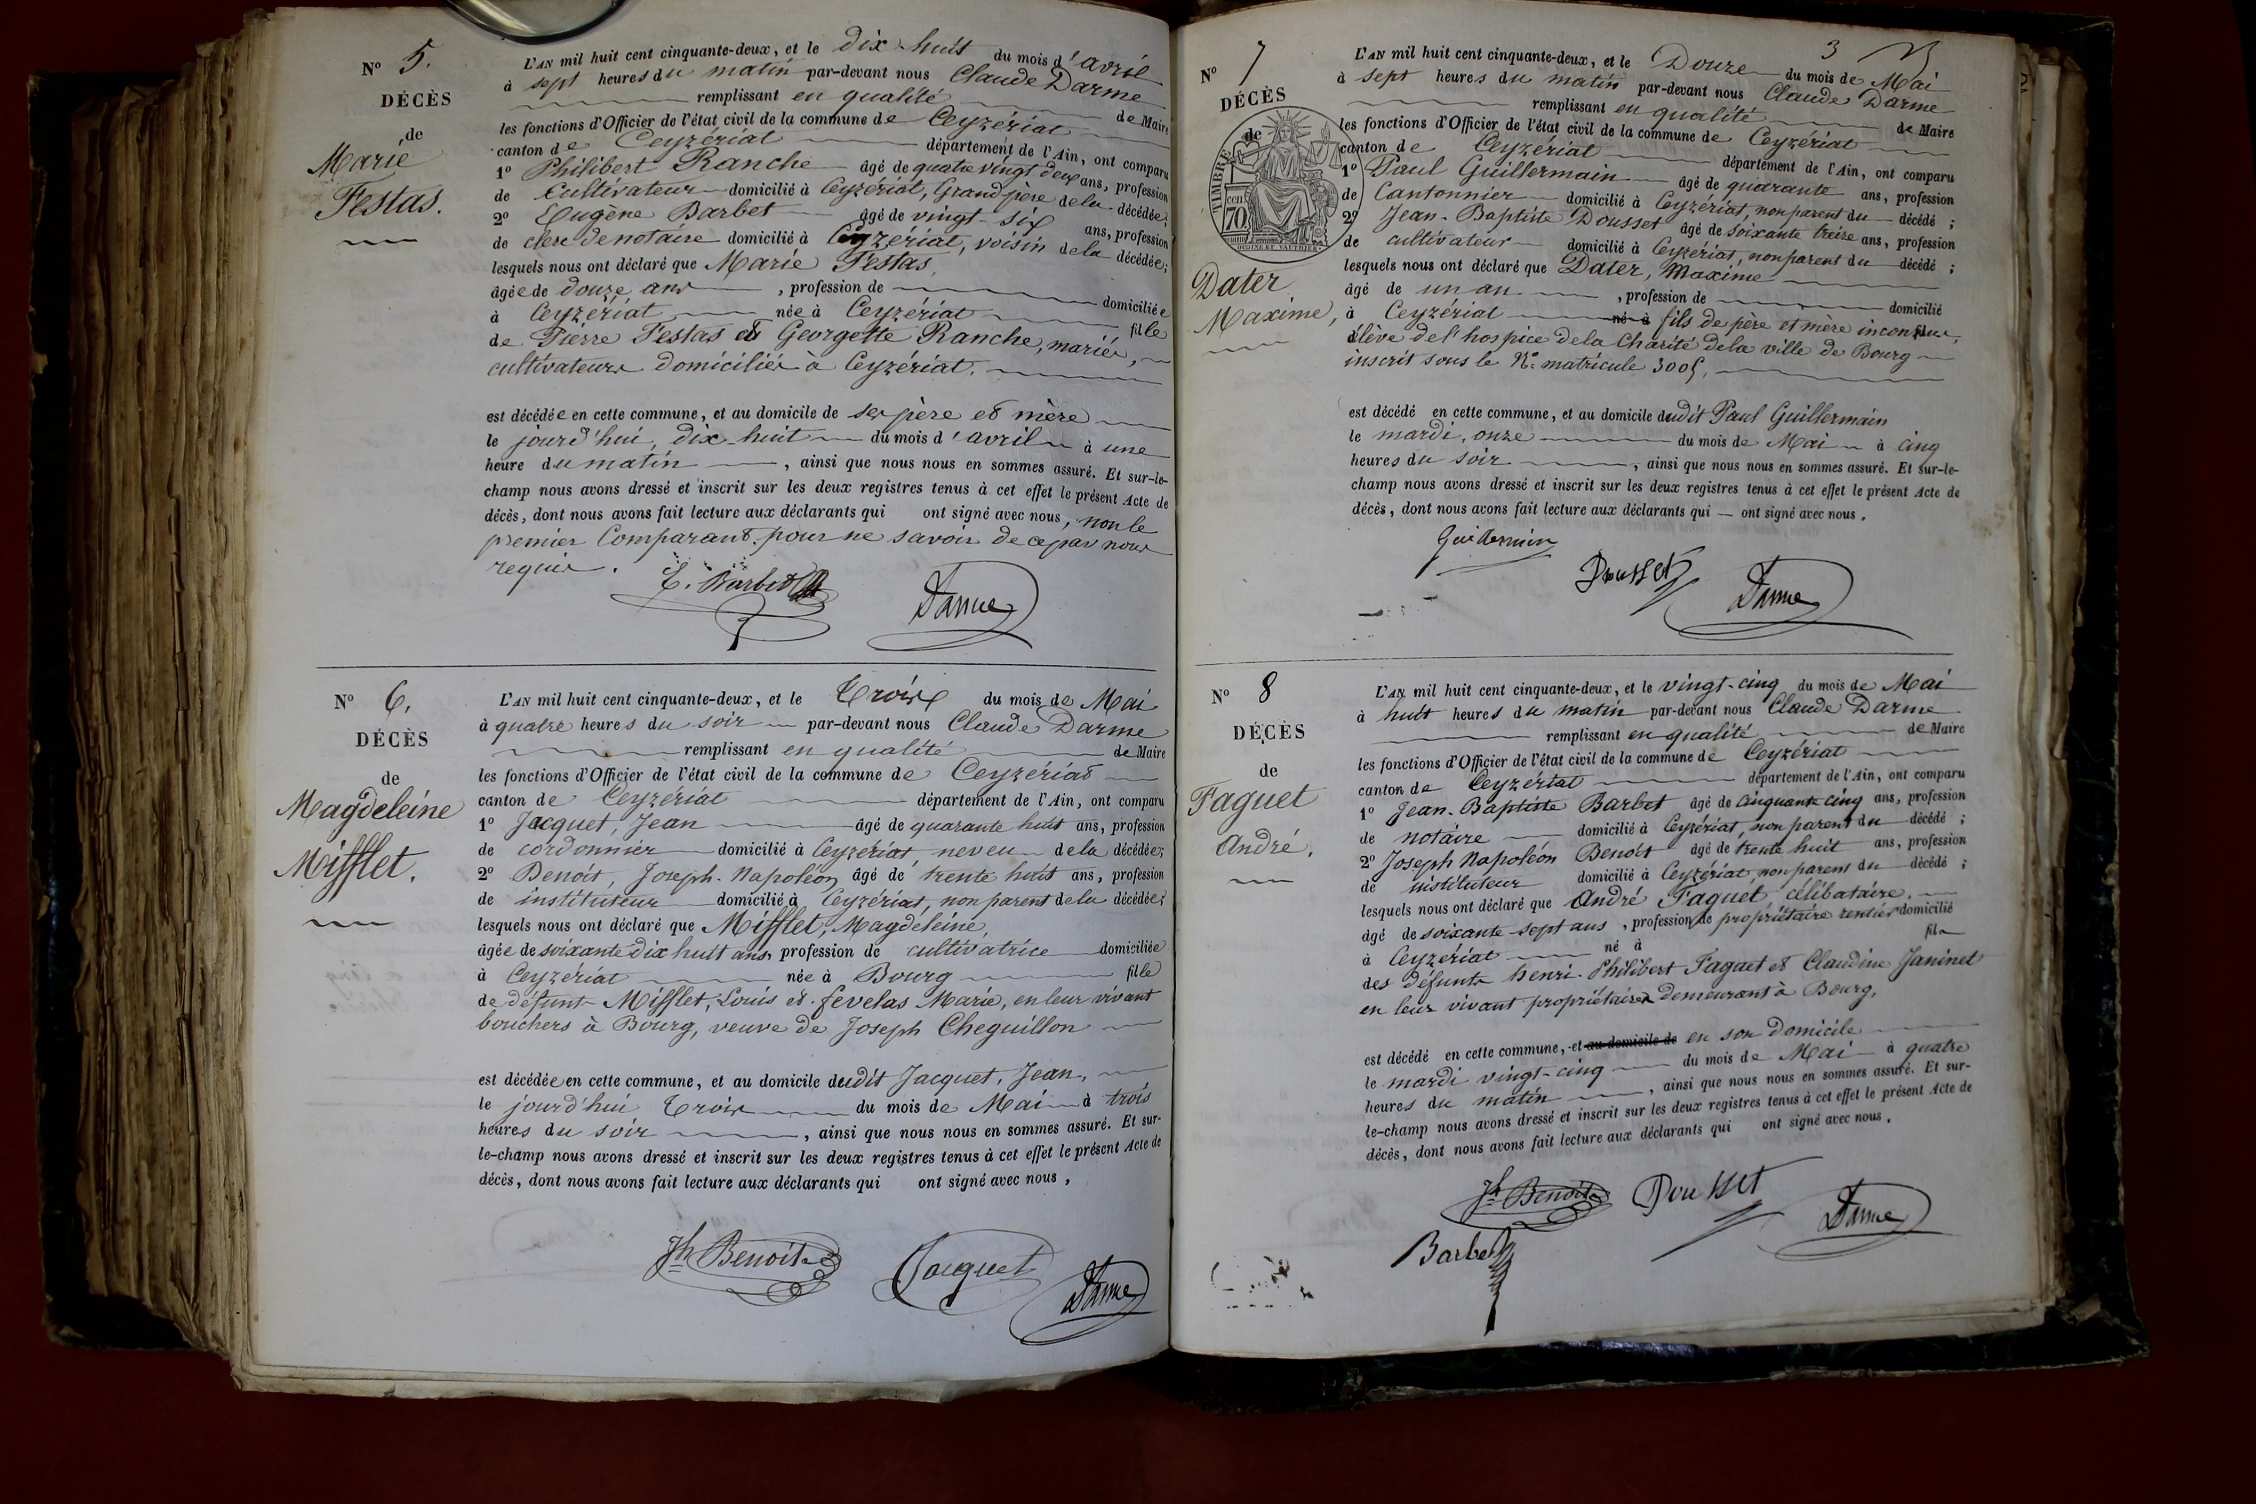 N° 5.
DÉCÈS
de
Marie
Festas.
L'AN mil huit cent cinquante-deux, et le dix-huit du mois d'avril
à sept heures du matin par-devant nous Claude Darme
remplissant en qualité de Maire
les fonctions d'Officier de l'état civil de la commune de Ceyzériat
canton de Ceyzériat département de l'Ain, ont comparu
1° Philibert Ranche âgé de quatre vingt deux ans, profession
de Cultivateur domicilié à Ceyzériat, Grand père de la décédée;
2° Eugène Barbet âgé de vingt-six ans, profession
de clerc de notaire domicilié à Ceyzériat, voisin de la décédée;
lesquels nous ont déclaré que Marie Festas,
âgée de douze ans, profession de domiciliée
à Ceyzériat née à Ceyzériat fille
de Pierre Festas et Georgette Ranche, mariés,
cultivateurs domiciliés à Ceyzériat.
est décédée en cette commune, et au domicile de ses père et mère
le jourd'hui, dix-huit du mois d'avril à une
heure du matin, ainsi que nous nous en sommes assuré. Et sur-le-
champ nous avons dressé et inscrit sur les deux registres tenus à cet effet le présent Acte de
décès, dont nous avons fait lecture aux déclarants qui ont signé avec nous, non le
premier Comparant, pour ne savoir de ce par nous
requis.
E. Barbet Darme
N° 6.
DÉCÈS
de
Magdeleine
Mifflet.
L'AN mil huit cent cinquante-deux, et le Trois du mois de Mai
à quatre heures du soir par-devant nous Claude Darme
remplissant en qualité de Maire
les fonctions d'Officier de l'état civil de la commune de Ceyzériat
canton de Ceyzériat département de l'Ain, ont comparu
1° Jacquet, Jean âgé de quarante huit ans, profession
de cordonnier domicilié à Ceyzériat, neveu de la décédée;
2° Benoit, Joseph-Napoléon, âgé de trente huit ans, profession
de instituteur domicilié à Ceyzériat, non parent de la décédée;
lesquels nous ont déclaré que Mifflet, Magdeleine,
âgée de soixante dix huit ans, profession de cultivatrice domiciliée
à Ceyzériat née à Bourg fille
de défunts Mifflet, Louis et fevelas Marie, en leur vivant
bouchers à Bourg, veuve de Joseph Cheguillon
est décédée en cette commune, et au domicile dudit Jacquet, Jean,
le jourd'hui Trois du mois de Mai à trois
heures du soir, ainsi que nous nous en sommes assuré. Et sur-
le-champ nous avons dressé et inscrit sur les deux registres tenus à cet effet le présent Acte de
décès, dont nous avons fait lecture aux déclarants qui ont signé avec nous,
Jh Benoit Jacquet Darme
3
N° 7
DÉCÈS
de
TIMBRE
CEN
70
Dater
Maxime,
L'AN mil huit cent cinquante-deux, et le Douze du mois de Mai
à sept heures du matin par-devant nous Claude Darme
remplissant en qualité de Maire
les fonctions d'Officier de l'état civil de la commune de Ceyzériat
canton de Ceyzériat département de l'Ain, ont comparu
1° Paul Guillermain âgé de quarante ans, profession
de Cantonnier domicilié à Ceyzériat, non parent du décédé;
2° Jean-Baptiste Dousset âgé de soixante treize ans, profession
de cultivateur domicilié à Ceyzériat, non parent du décédé;
lesquels nous ont déclaré que Dater, Maxime
âgé de un an, profession de domicilié
à Ceyzériat né à fils de père et mère inconnus,
élève de l'hospice de la Charité de la ville de Bourg
inscrit sous le N° matricule 3005.
est décédé en cette commune, et au domicile dudit Paul Guillermain
le mardi, onze du mois de Mai à cinq
heures du soir, ainsi que nous nous en sommes assuré. Et sur-le-
champ nous avons dressé et inscrit sur les deux registres tenus à cet effet le présent Acte de
décès, dont nous avons fait lecture aux déclarants qui — ont signé avec nous.
Dousset Darme
N° 8
DÉCÈS
de
Faguet
André.
L'AN mil huit cent cinquante-deux, et le vingt-cinq du mois de Mai
à huit heures du matin par-devant nous Claude Darme
remplissant en qualité de Maire
les fonctions d'Officier de l'état civil de la commune de Ceyzériat
canton de Ceyzériat département de l'Ain, ont comparu
1° Jean-Baptiste Barbet âgé de cinquante cinq ans, profession
de notaire domicilié à Ceyzériat, non parent du décédé;
2° Joseph Napoléon Benoit âgé de trente huit ans, profession
de instituteur domicilié à Ceyzériat, non parent du décédé;
lesquels nous ont déclaré que André Faguet célibataire,
âgé de soixante-sept ans, profession de propriétaire rentier domicilié
à Ceyzériat né à fils
des défunts henri-Philibert Faguet et Claudine Janinet
en leur vivant propriétaires demeurant à Bourg,
est décédé en cette commune, et au domicile de en son domicile
le mardi vingt-cinq du mois de Mai à quatre
heures du matin, ainsi que nous nous en sommes assuré. Et sur-
le-champ nous avons dressé et inscrit sur les deux registres tenus à cet effet le présent Acte de
décès, dont nous avons fait lecture aux déclarants qui ont signé avec nous.
Jh Benoit Dousset Darme
Barbet